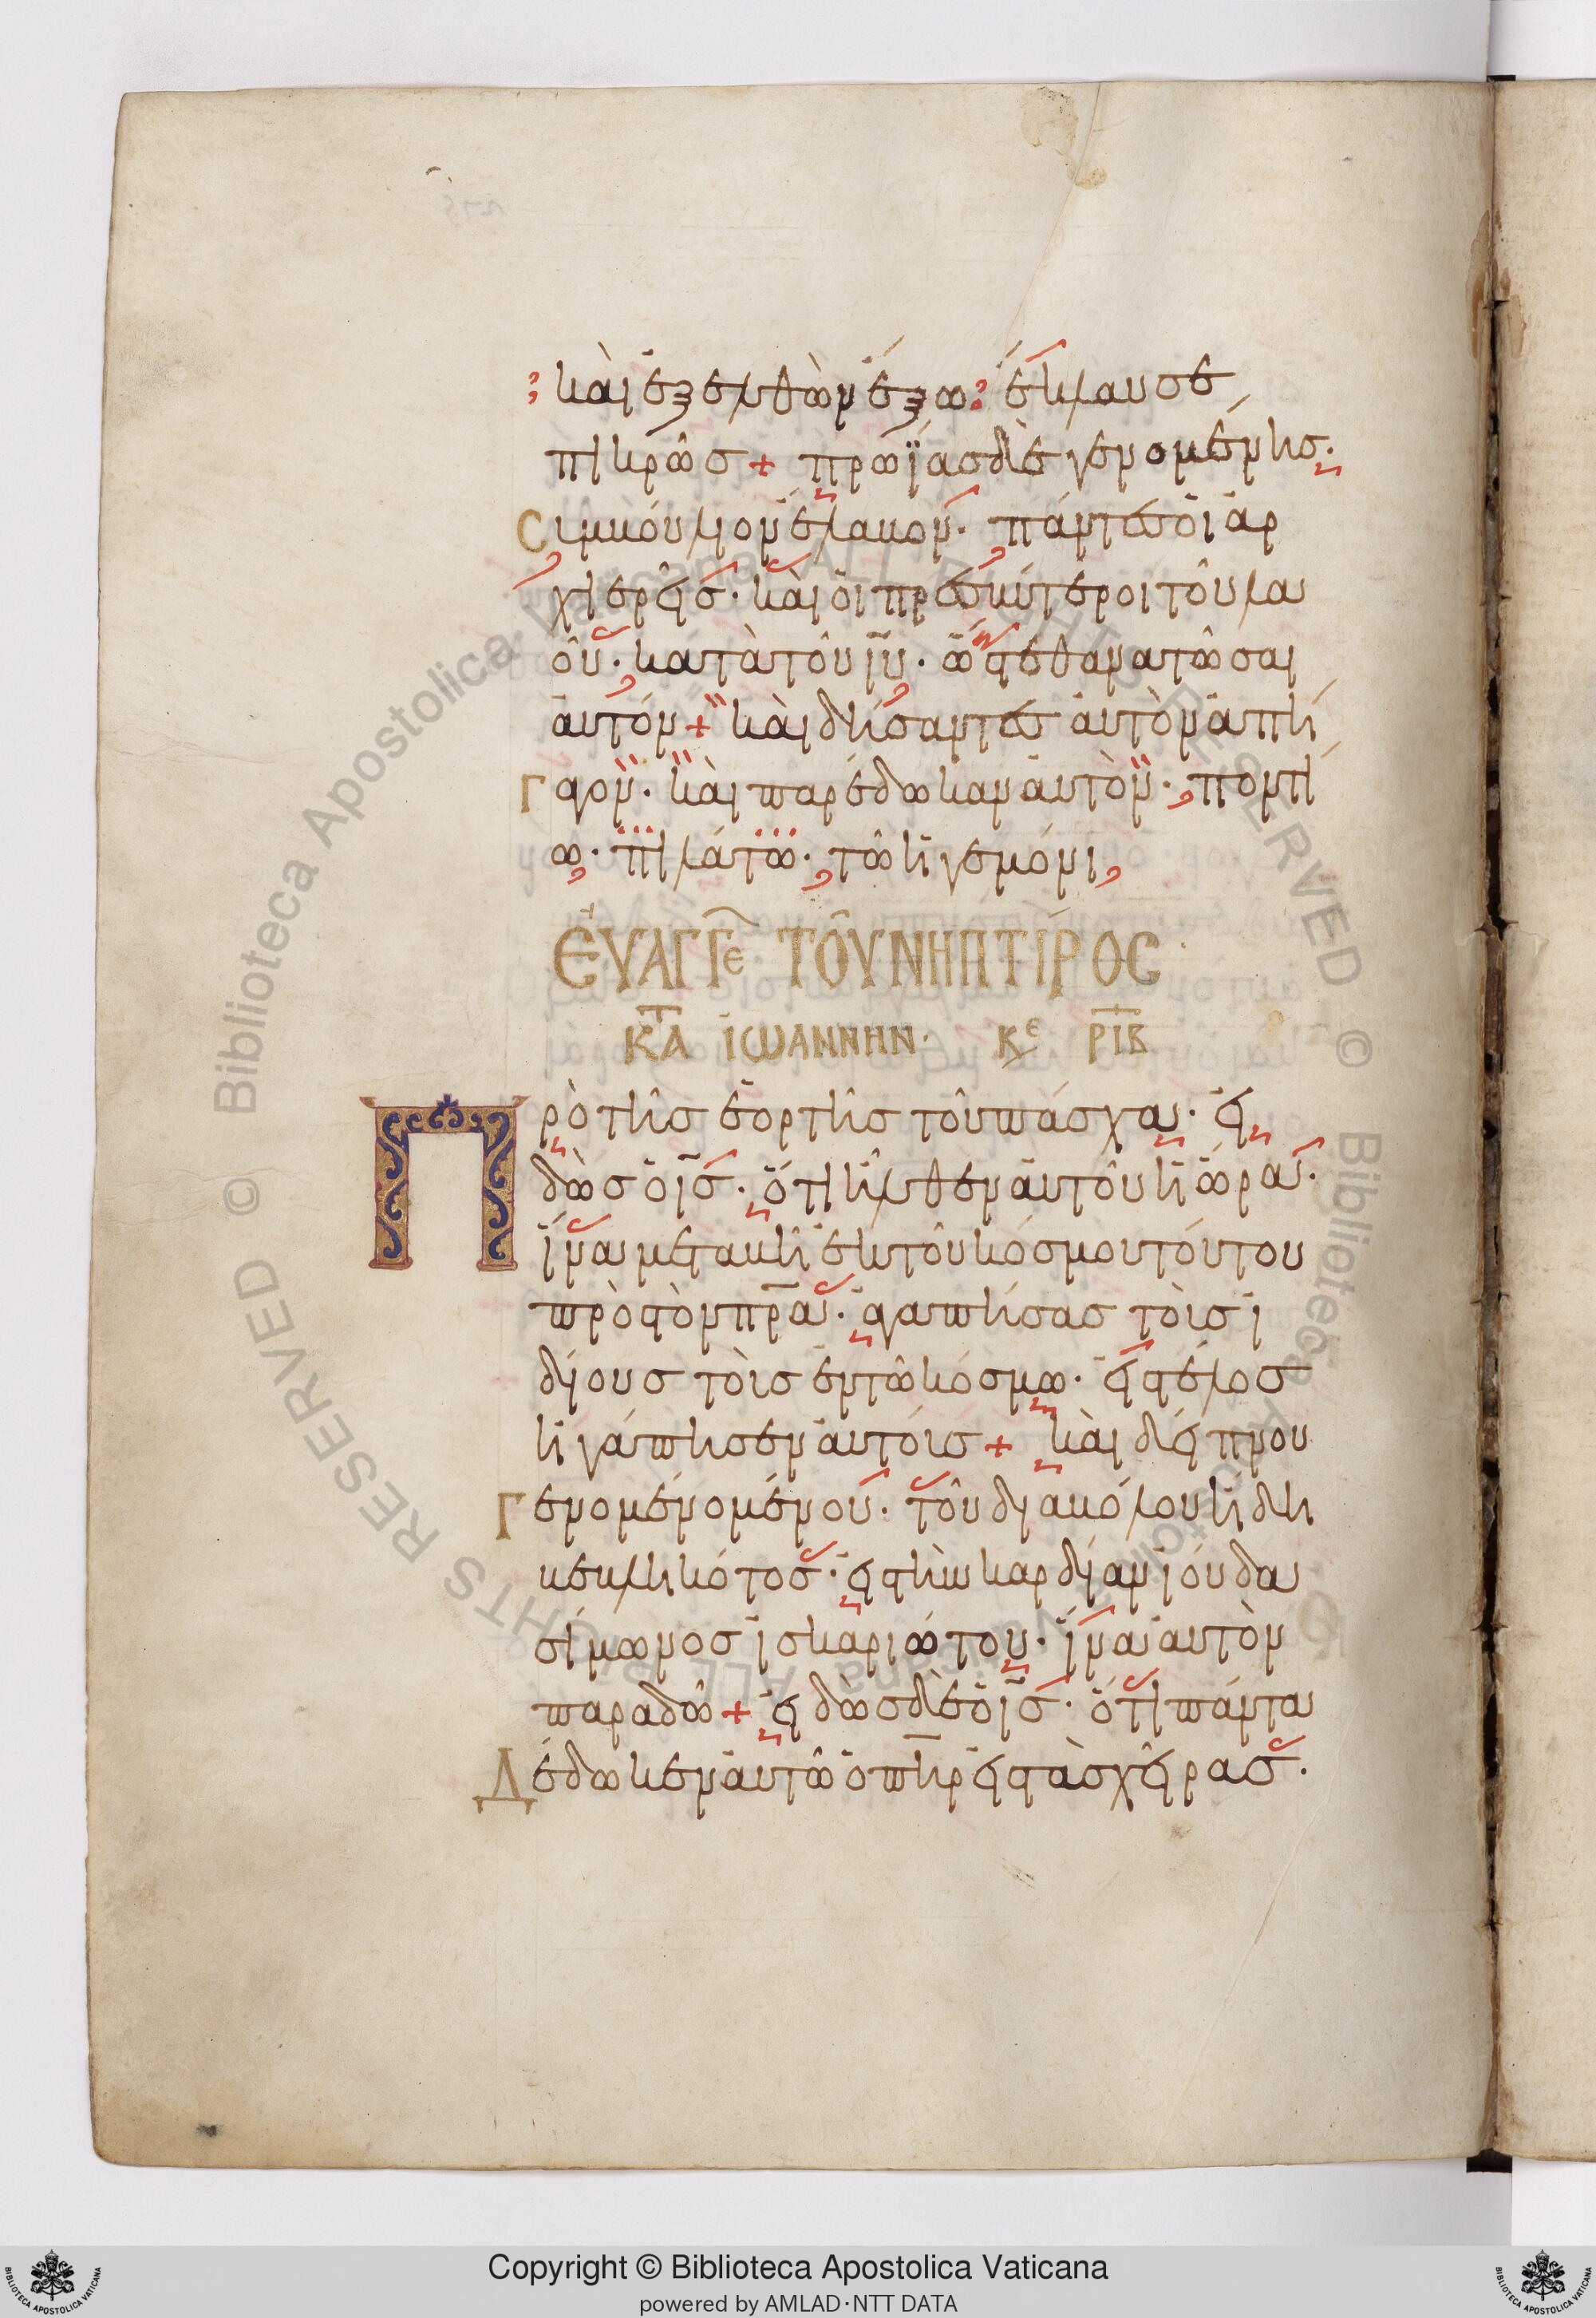 καὶ ἐξελθὼν ἔξω· ἔκλαυσε
πικρῶσ + πρωΐασ δὲ γενομένησ·
Σιμκούλιον ἔλακον· πάντεσ οἱ ἀρ
χιερεῖσ· καὶ οἱ πρεσκύτεροι τοῦ λα
οῦ· κατὰ τοῦ ιυ· ὥστε θανατῶσαι
αὐτόν + καὶ δήσαντεσ αὐτὸν ἀπή
Γαγον· καὶ παρέδωκαν αὐτὸν· ποντί
ω· πιλάτω· τῶ ἡγεμόνι
ΕΥΑΓΓΕ ΤΟΥ ΝΗΠΤΙΡΟΣ
ΚΤΑ ΙΩΑΝΝΗΝ· ΚΕ ΡΙΒ
Πρὸ τῆσ ἑορτῆσ τοῦ πάσχα· εἰ
δὼσ ὁ ισ· ὅτι ἦλθεν αὐτοῦ ἡ ὥρα·
ἵνα μετακῆ ἐκ τοῦ κόσμου τούτου
πρὸσ τὸν πρα· ἀγαπήσασ τοὺσ ἰ
δίουσ τοὺσ ἐν τῶ κόσμω· εἰσ τέλοσ
ἠγάπησεν αὐτούσ + καὶ δείπνου
Γενομένομένου· τοῦ διακόλου ἤδη
κεκληκότοσ· εἰσ τὴν καρδίαν ἰούδα
σίμωνοσ ἰσκαριώτου· ἵνα αὐτὸν
παραδῶ + εἰδὼσ δὲ ὁ ισ· ὅτι πάντα
Δέδωκεν αὐτῶ ὁ πηρ εἰσ τὰσ χεῖρασ·
Copyright © Biblioteca Apostolica Vaticana
powered by AMLAD·NTT DATA